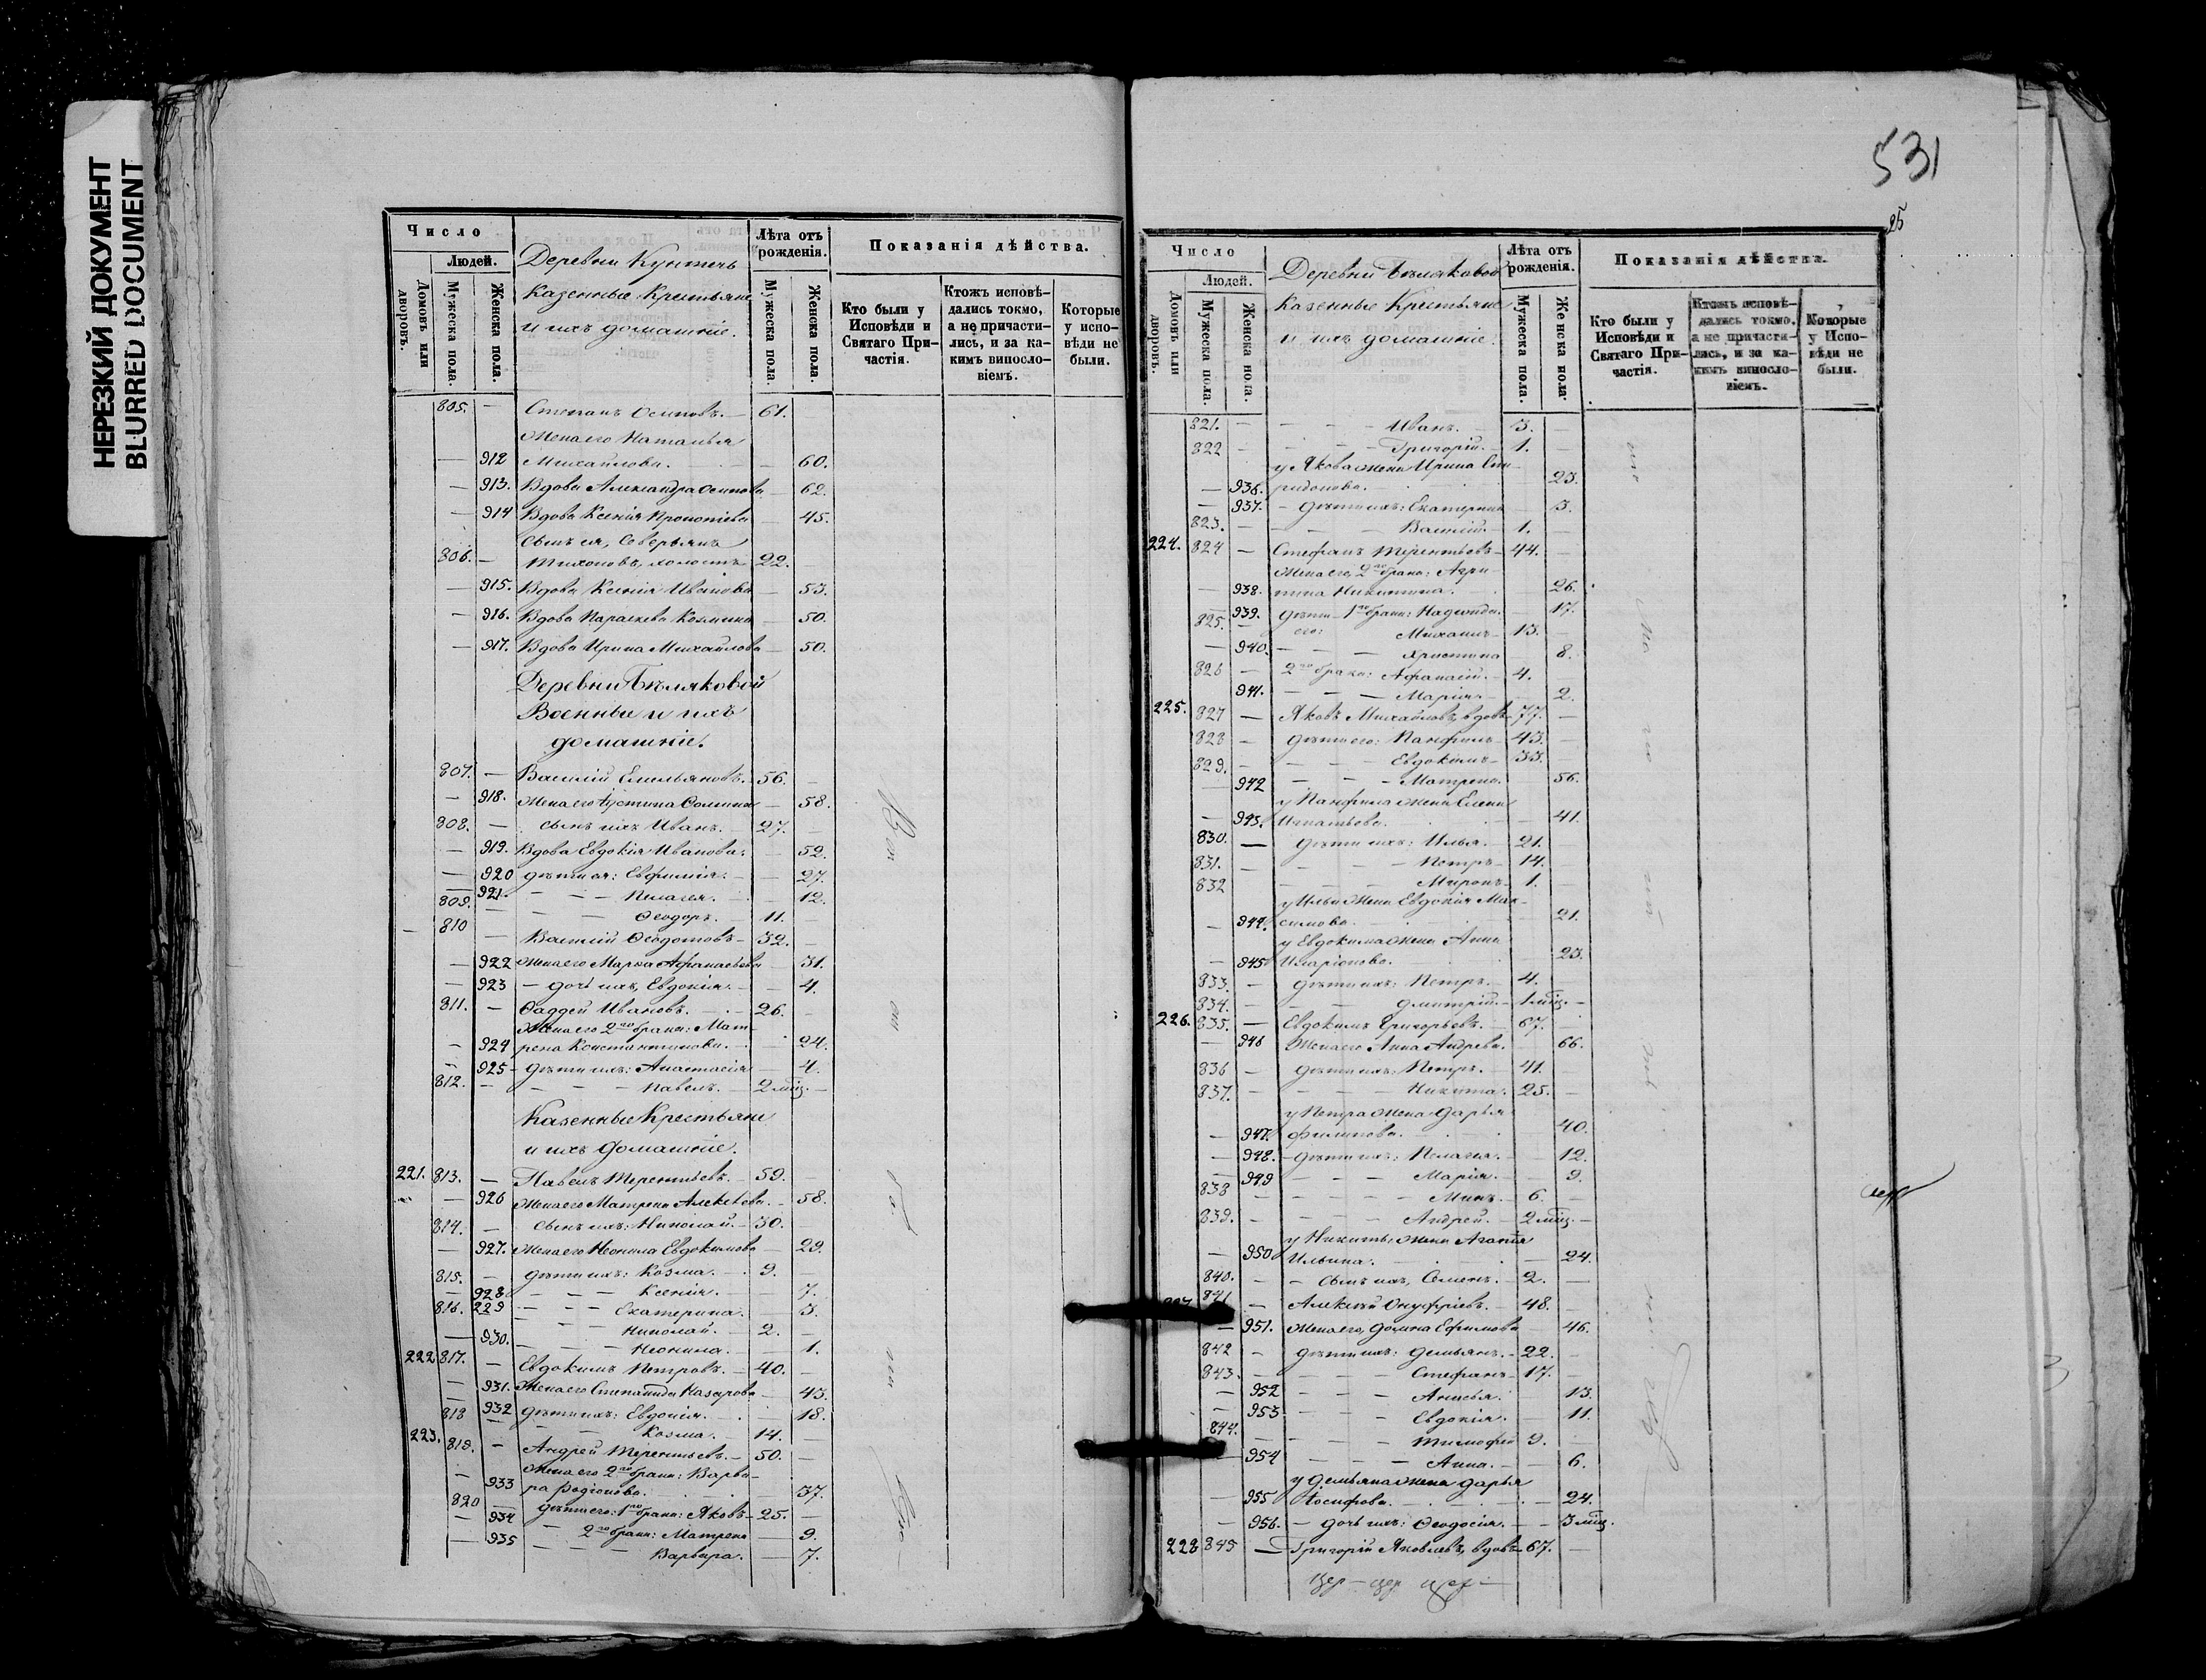 НЕРЕЗКИЙ ДОКУМЕНТ
BLURRED DOCUMENT
Число
Людей.
Домовъ или дворовъ.
Мужеска пола.
Женска пола.
Деревни
Казенные Крестьяне
и ихъ домашніе.
Лѣта отъ рожденія.
Мужеска пола.
Женска пола.
Показанія дѣйства.
Кто были у Исповѣди и Святаго Причастія.
Ктожъ исповѣдались токмо, а не причастились, и за какимъ винословіемъ.
Которые у исповѣди не были.
805. — Степанъ Осиповъ. — 61.
Жена его Наталья
— 912 Михайлова. — 60.
— 913. Вдова Александра Осипова — 62.
— 914 Вдова Ксенія — 45.
сынъ ея, Северьянъ
806. — Тихоновъ, холостъ 22.
— 915. Вдова Ксенія Иванова — 53.
— 916. Вдова Параскева Козмина — 50.
— 917. Вдова Ирина Михайлова — 50.
Деревни Бѣляковой
Военные и ихъ
домашніе.
807. — Василій Емельяновъ. 56. —
— 918. Жена его Іустина — 58.
808. — сынъ ихъ Иванъ. 27. —
— 919. Вдова Евдокія Иванова. — 52.
— 920 дѣти ея: Евфимія. — 27.
— 921. — — — Пелагея. — 12.
809. — — — Ѳеодоръ. — 11.
810 — Василій Ѳедотовъ — 32. —
— 922 Жена его Марѳа Афанасьева — 31.
— 923 — дочь ихъ, Евдокія. — 4.
811. — Ѳаддей Ивановъ. — 26. —
Жена его 2го брака: Мат-
— 924 рена Константинова. — 24.
— 925 — дѣти ихъ: Анастасія — 4.
812. — — — Павелъ. — 2 мѣц. —
Казенные Крестьяне
и ихъ домашніе.
221. 813. — Павелъ Терентьевъ. — 59.
— 926 Жена его Матрена Алексѣева. — 58.
814. — сынъ ихъ: Николай. — 30.
— 927. Жена его Неонила Евдокимова — 29.
815. — дѣти ихъ: Козма. — 9. —
— 928 — — — Ксенія. — 7.
816. 929 — — — Екатерина. — 3.
— — — Николай. — 2. —
— 930. — — — Неонила. — 1.
222 817. — Евдокимъ Петровъ. — 40. —
— 931. Жена его Степанида Назарова — 43.
— 932 дѣти ихъ: Евдокія. — 18.
818 — — — Козма. — 14. —
223. 819. — Андрей Терентьевъ. — 50. —
Жена его 2го брака: Варва-
— 933 ра Родіонова. — 37.
820 — дѣти его: 1го брака: Яковъ — 25. —
— 934 — 2го брака: Матрена — 9.
— 935 — — — Варвара. — 7.
531
25
Число
Людей.
Домовъ или дворовъ.
Мужеска пола.
Женска пола.
Деревни Бѣляковой
Казенные Крестьяне
и ихъ домашніе.
Лѣта отъ рожденія.
Мужеска пола.
Женска пола.
Показанія дѣйства.
Кто были у Исповѣди и Святаго Причастія.
Ктожъ исповѣдались токмо, а не причастились, и за какимъ винословіемъ.
Которые у Исповѣди не были.
821. — — — — Иванъ. — 3. —
822 — — — — Григорій. — 1. —
у Якова жена Ирина Спи-
— 936. ридонова. 23.
— 937. — дѣти ихъ: Екатерина — 3.
823. — — — Василій. — 1. —
224. 824 — Стефанъ Терентьевъ — 44. —
Жена его, 2го брака: Агри-
— 938. пина Никитина. 26.
— 939. дѣти 1го брака: Надежда. 17.
825. — его: Михаилъ — 13. —
— 940. — — — Христина — 8.
826 — 2го брака: Афанасій. — 4. —
941. — — — Марія — 2.
225. 827 — Яковъ Михайловъ, вдовъ — 77. —
828 — дѣти его: Панфилъ — 43. —
829. — — — Евдокимъ — 33. —
— 942 — — — Матрена. 56.
у Панфила жена Елена
— 943. Игнатьева. — 41.
830. — дѣти ихъ: Илья. — 21. —
831. — — — Петръ — 14. —
832 — — — Миронъ — 1. —
у Ильи жена Евдокія Мак-
— 944. симова. — 21.
у Евдокима жена Анна
— 945 Иларіонова. 23.
833. — дѣти ихъ: Петръ. — 4. —
834. — — — Дмитрій. — 1 мѣц. —
226. 835. — Евдокимъ Григорьевъ. — 67. —
— 946 Жена его Анна Андрева. 66.
836 — дѣти ихъ: Петръ. — 41. —
837. — — — Никита. 25. —
у Петра жена Дарья
— 947. Филипова. 40.
— 948. — дѣти ихъ: Пелагея. — 12.
— 949 — — — Марія. — 9.
838 — — — 6. —
839. — — — Андрей. — 2 мѣц. —
у Никиты жена Агапія
— 950 Ильина. — 24.
840. — — сынъ ихъ, Семенъ. — 2. —
841 — Алексѣй Онуфріевъ. — 48. —
— 951. Жена его, Домна Ефимова — 46.
842 — дѣти ихъ: Демьянъ. — 22. —
843. — — — Стефанъ — 17. —
— 952 — — — Анисья. 13.
— 953 — — — Евдокія. — 11.
844. — — — Тимофей 9. —
— 954 — — — Анна. — 6.
у Демьяна жена Дарья
— 955 Іосифова. — 24.
— 956. — дочь ихъ: Ѳеодосія. — 3 мѣц.
228 845 — Григорій Яковлевъ, вдовъ — 67. —